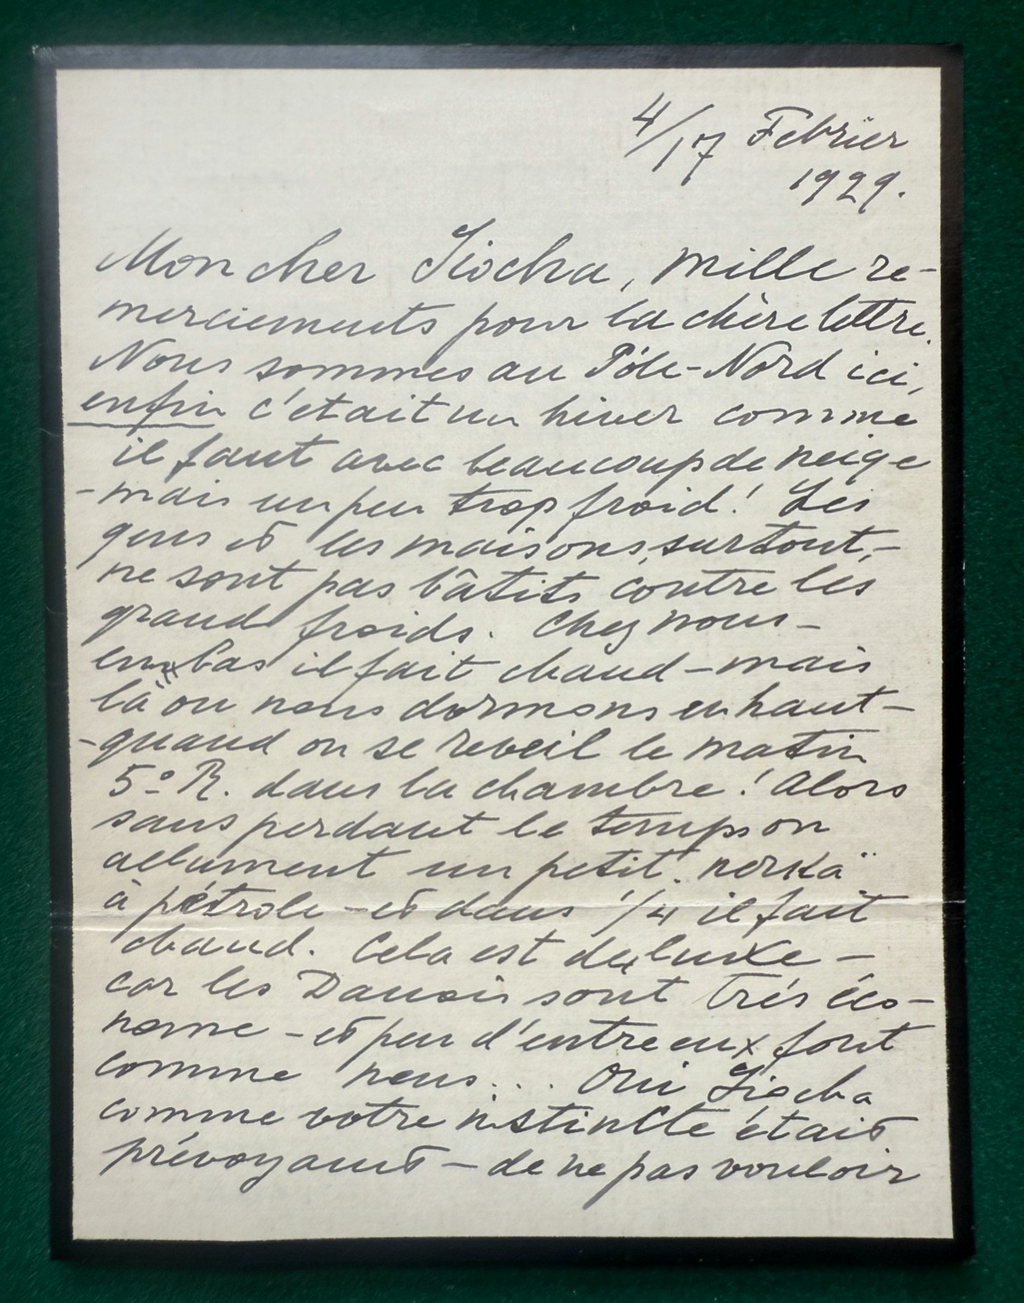 4/17 Febrier
1929.
Mon cher Siocha, mille re-
merciements pour la chère lettre.
Nous sommes au Pôle-Nord ici,
enfin c'etait un hiver comme
il faut avec beaucoup de neige
-mais un peu trop froid! Les
gens et les maisons, surtout,-
ne sont pas bâtits contre les
grand froids. Chez nous-
en bas il fait chaud-mais
là ou nous dormons en haut-
-quand on se reveil le matin
5° R. dans la chambre! Alors
sans perdant le temps on
allument un petit "kerka"
à pétrole-et dans 1/4 il fait
chaud. Cela est du luxe-
car les Danois sont trés éco-
nome-et peu d'entre eux font
comme nous... Oui Siocha
comme votre instinkte était
prévoyant-de ne pas vouloir